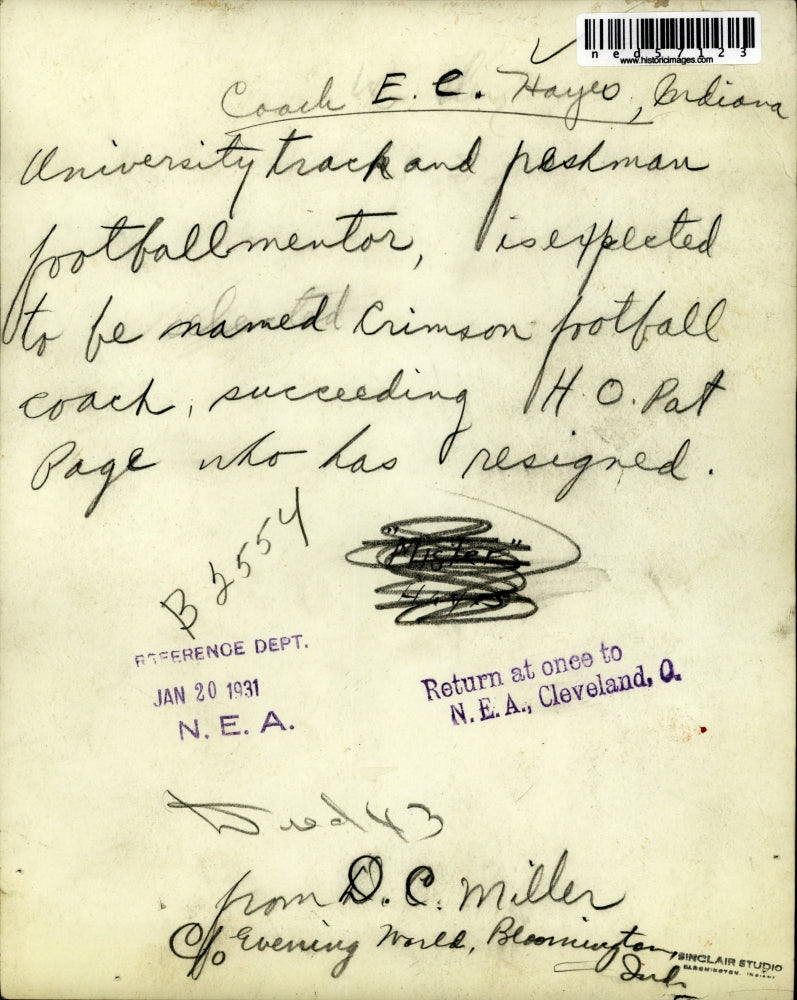 ned57123
www.historicimages.com
Coach E. C. Hayes, Indiana
University track and freshman
football mentor, is expected
to be named Crimson football
coach, succeeding H. O. Pat
Page who has resigned.
"Mister"
Hayes
B2554
REFERENCE DEPT.
JAN 20 1931
N. E. A.
Return at once to
N. E. A., Cleveland, O.
Died 43
from D. C. Miller
C/o Evening World, Bloomington,
Ind.
SINCLAIR STUDIO
BLOOMINGTON, INDIANA